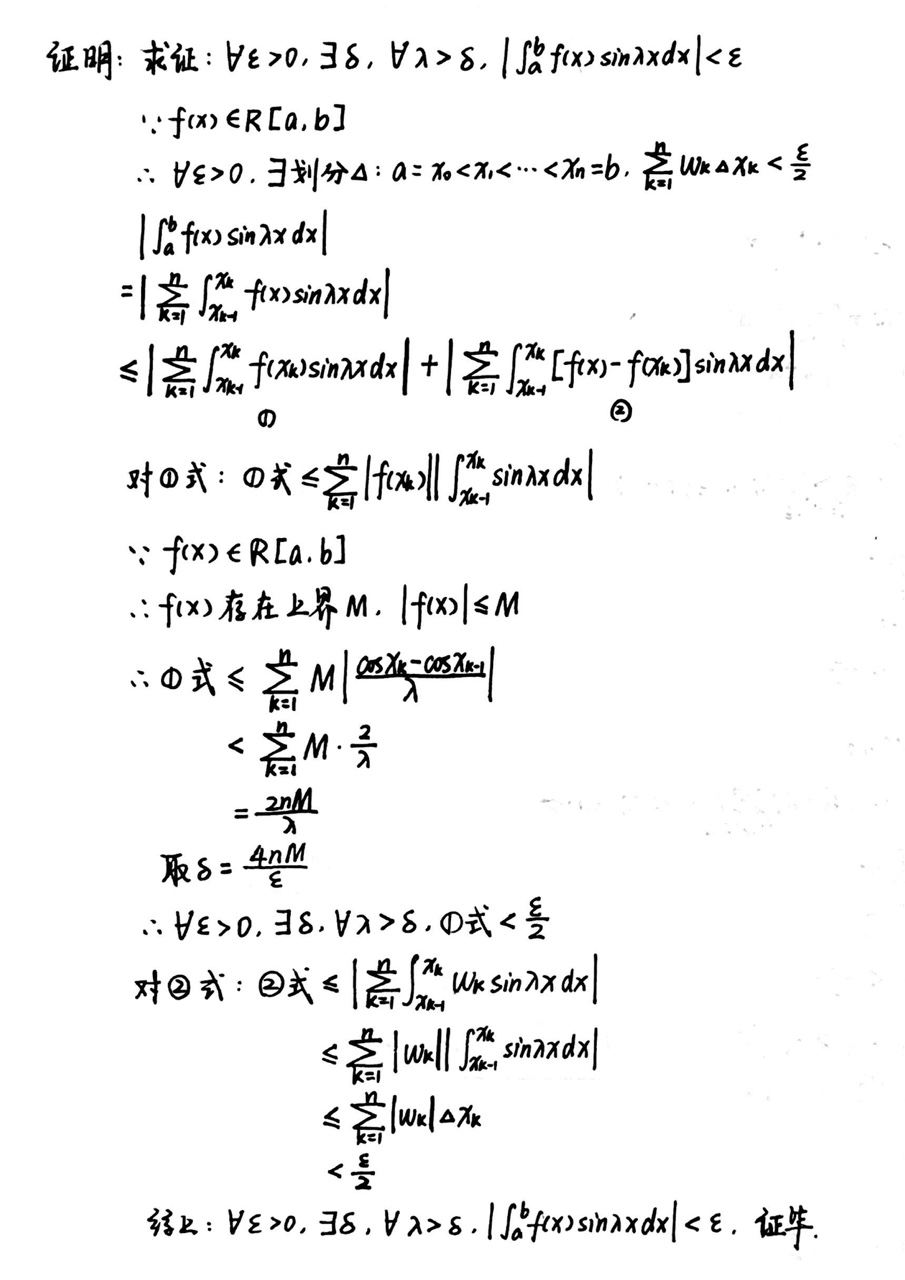 证明: 求证: ∀ε>0, ∃δ, ∀λ>δ, |∫ₐᵇ f(x)sinλxdx|<ε
∵ f(x)∈R[a,b]
∴ ∀ε>0, ∃划分Δ: a=x₀<x₁<⋯<xₙ=b, ∑_{k=1}^{n} w_kΔx_k < ε/2
|∫ₐᵇ f(x)sinλxdx|
=|∑_{k=1}^{n} ∫_{x_{k-1}}^{x_k} f(x)sinλxdx|
≤|∑_{k=1}^{n} ∫_{x_{k-1}}^{x_k} f(x_k)sinλxdx| + |∑_{k=1}^{n} ∫_{x_{k-1}}^{x_k} [f(x)-f(x_k)]sinλxdx|
① ②
对①式: ①式 ≤ ∑_{k=1}^{n} |f(x_k)||∫_{x_{k-1}}^{x_k} sinλxdx|
∵ f(x)∈R[a,b]
∴ f(x)存在上界M, |f(x)|≤M
∴ ①式 ≤ ∑_{k=1}^{n} M|(cosx_k-cosx_{k-1})/λ|
< ∑_{k=1}^{n} M·2/λ
= 2nM/λ
取δ= 4nM/ε
∴ ∀ε>0, ∃δ, ∀λ>δ, ①式< ε/2
对②式: ②式 ≤ |∑_{k=1}^{n} ∫_{x_{k-1}}^{x_k} w_k sinλxdx|
≤ ∑_{k=1}^{n} |w_k||∫_{x_{k-1}}^{x_k} sinλxdx|
≤ ∑_{k=1}^{n} |w_k|Δx_k
< ε/2
综上: ∀ε>0, ∃δ, ∀λ>δ, |∫ₐᵇ f(x)sinλxdx|<ε, 证毕.